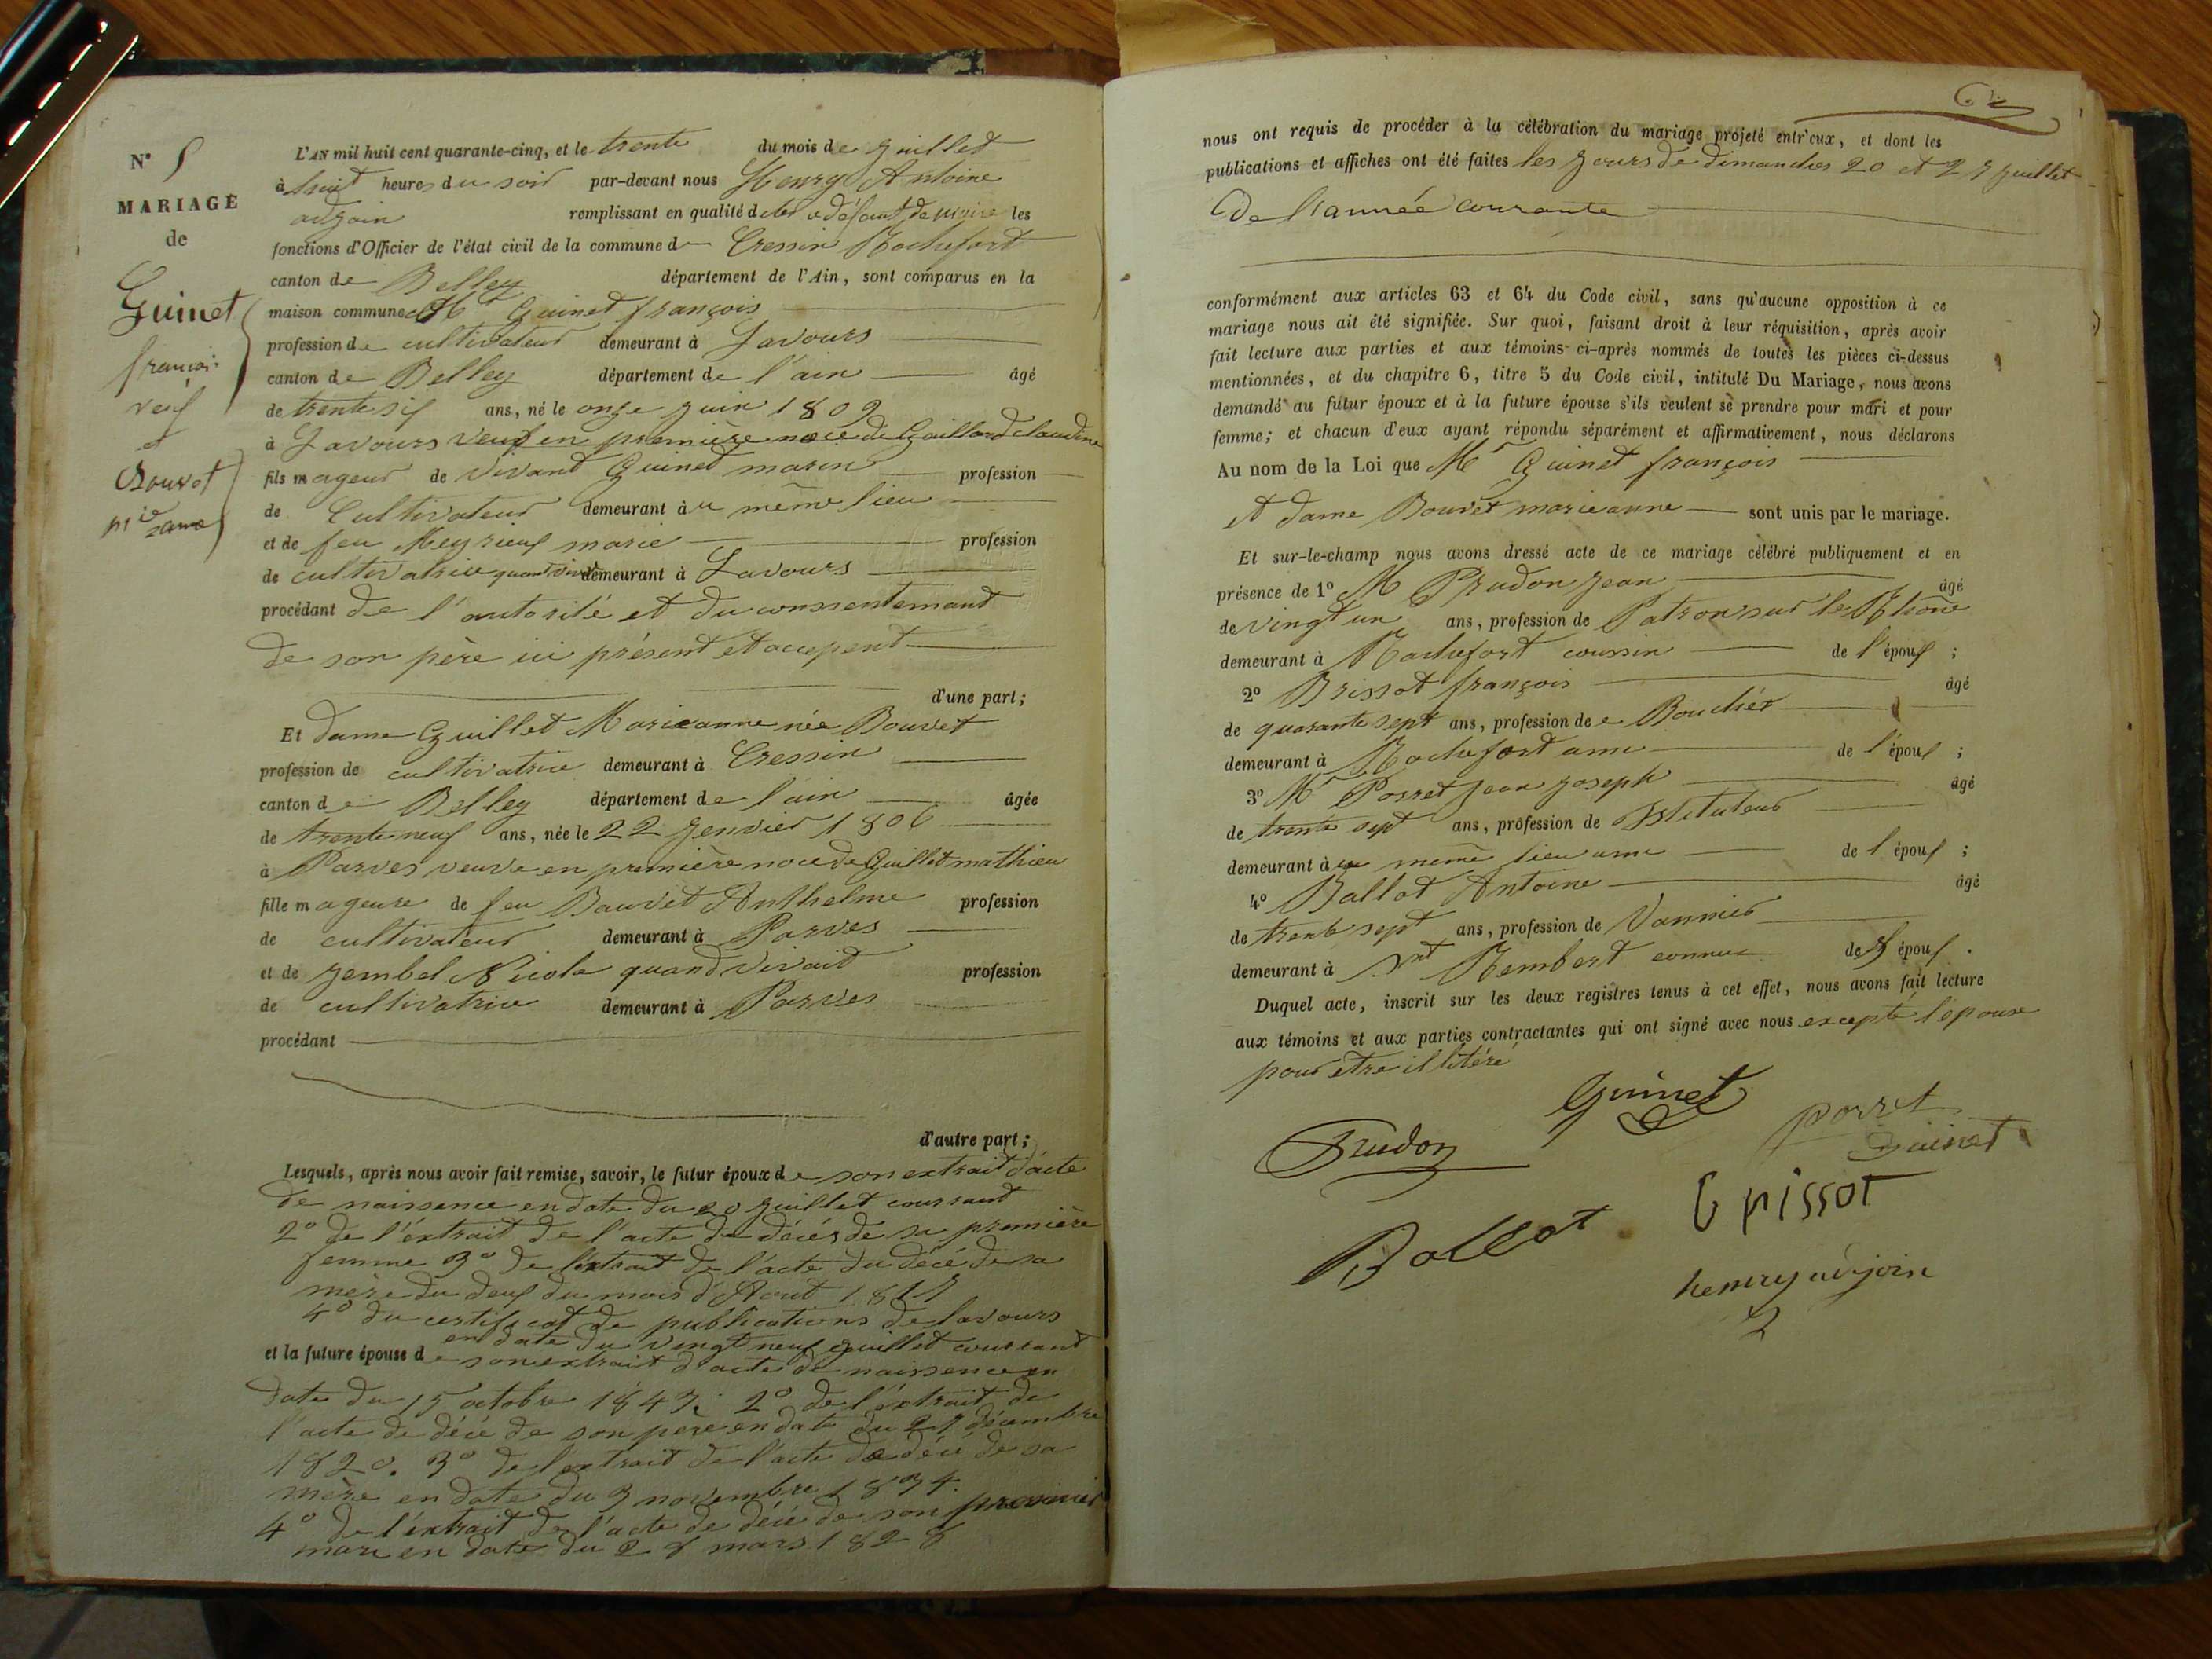 N° 5
MARIAGE
de
Guinet
françois
veuf
et
Bouvet
Mie anne
L'AN mil huit cent quarante-cinq, et le trente du mois de guillet
à huit heures du soir par-devant nous Henry Antoine
adgoin remplissant en qualité de défaut de maire les
fonctions d'Officier de l'état civil de la commune de Cressin Rochefort
canton de Belley département de l'Ain, sont comparus en la
maison commune Guinet françois
profession de cultivateur demeurant à Lavours
canton de Belley département de l'ain âgé
de trente six ans, né le onze guin 1809
à Lavours veuf en première noce de Gaillard claudine
fils mageur de vivant Guinet marin profession
de Cultivateur demeurant à u même lieu
et de feu Meyrieux marie profession
de cultivatrice quand vivait demeurant à Lavours
procédant de l'autorité et du conssentemant
de son père ici présent et accepent
d'une part;
Et Dame Guillet Marieanne née Bouvet
profession de cultivatrice demeurant à Cressin
canton de Belley département de l'ain âgée
de trente neuf ans, née le 22 genvier 1806
à Parves veuve en première noce de Guillet mathieu
fille mageure de feu Bouvet Anthelme profession
de cultivateur demeurant à Parves
et de gembel Nicole quand vivait profession
de cultivatrice demeurant à Parves
procédant
d'autre part;
Lesquels, après nous avoir fait remise, savoir, le futur époux de son extrait d'acte
de naissence en date du 20 guillet courrant
2° de l'éxtrait de l'acte de décés de sa première
femme 3° de l'extrait de l'acte du décé de sa
mère du deux du mois d'Aout
4° du certificat de publications de lavours
en date du vingt neuf guillet courrant
et la future épouse de son extrait d'acte de naissence en
date du 15 octobre 1843. 2° de l'éxtrait de
l'acte de décé de son père en date du 27 décembre
1820. 3° de l'extrait de l'acte de décé de sa
mère en date du 3 novembre 1834.
4° de l'éxtrait de l'acte de décé de son premier
mari en date du 28 mars 1828
nous ont requis de procéder à la célébration du mariage projeté entr'eux, et dont les
publications et affiches ont été faites les gours de dimanches 20 et 27 guillet
De l'année courrante
conformément aux articles 63 et 64 du Code civil, sans qu'aucune opposition à ce
mariage nous ait été signifiée. Sur quoi, faisant droit à leur réquisition, après avoir
fait lecture aux parties et aux témoins ci-après nommés de toutes les pièces ci-dessus
mentionnées, et du chapitre 6, titre 5 du Code civil, intitulé Du Mariage, nous avons
demandé au futur époux et à la future épouse s'ils veulent se prendre pour mari et pour
femme; et chacun d'eux ayant répondu séparément et affirmativement, nous déclarons
Au nom de la Loi que Mr Guinet françois
et dame Bouvet marieanne sont unis par le mariage.
Et sur-le-champ nous avons dressé acte de ce mariage célébré publiquement et en
présence de 1° M Prudon Jean âgé
de vingt un ans, profession de Patron sur le Rhône
demeurant à Rochefort coussin de l'époux ;
2° Brissot françois âgé
de quarante sept ans, profession de Bouchér
demeurant à Rochefort ami de l'époux ;
3° Mr Porret Jean Joseph âgé
de trente sept ans, profession de Istituteur
demeurant à u même lieu ami de l'époux ;
4° Ballot Antoine âgé
de trente sept ans, profession de Vannier
demeurant à Snt Rembert connu de l'époux .
Duquel acte, inscrit sur les deux registres tenus à cet effet, nous avons fait lecture
aux témoins et aux parties contractantes qui ont signé avec nous excepté l'épouse
pour être illitéré
Guinet
Prudon
porret
Guinet
Brissot
Ballot
henry adjoin